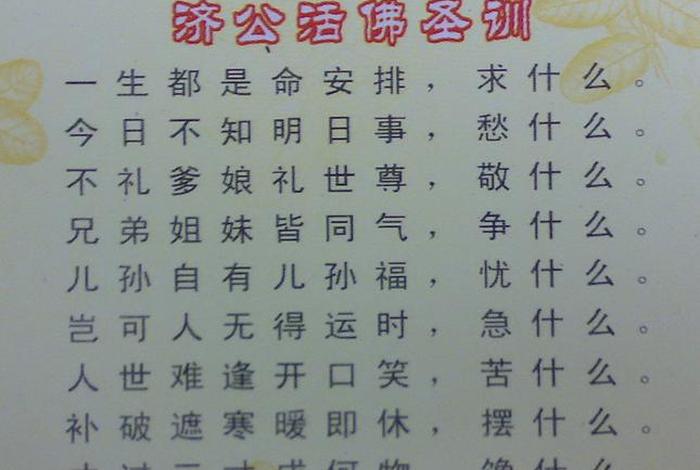 济公活佛圣训
一生都是命安排，求什么。
今日不知明日事，愁什么。
不礼爹娘礼世尊，敬什么。
兄弟姐妹皆同气，争什么。
儿孙自有儿孙福，忧什么。
岂可人无得运时，急什么。
人世难逢开口笑，苦什么。
补破遮寒暖即休，摆什么。